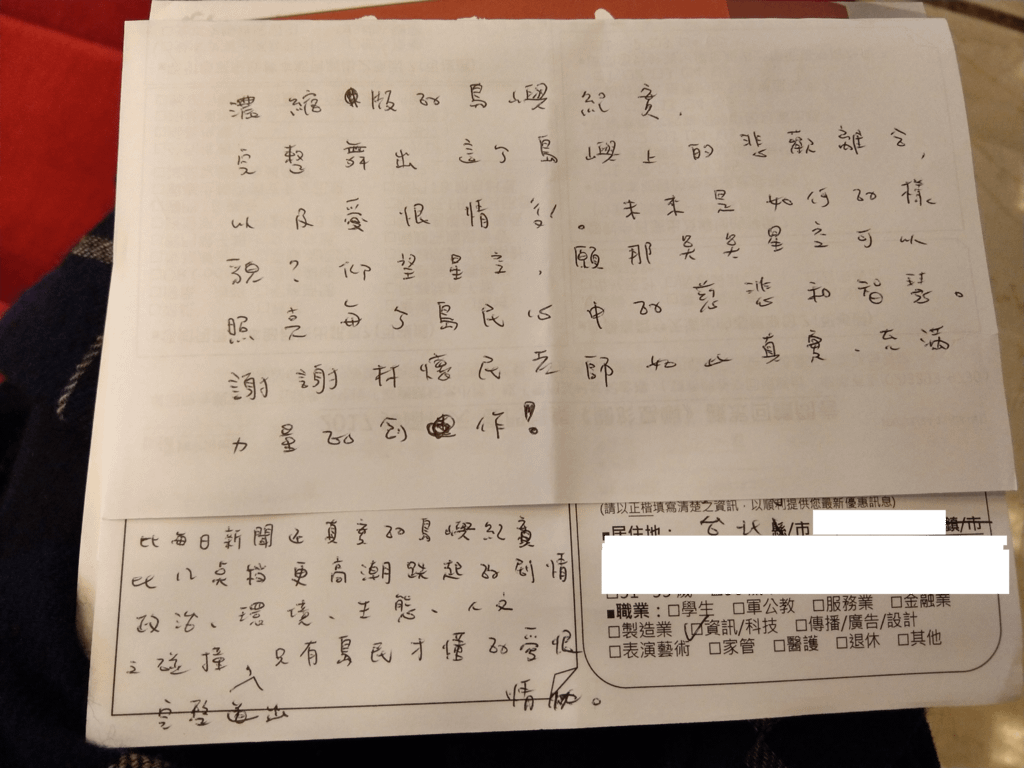 濃縮版的島嶼紀實,
完整舞出這个島嶼上的悲歡離合,
以及愛恨情仇。未來是如何的樣
貌?仰望星空,願那點點星空可以
照亮每个島民心中的慈悲和智慧。
謝謝林懷民老師如此真實、充滿
力量的創作!
(請以正楷填寫清楚之資訊,以順利提供您最新優惠訊息)
比每日新聞還真實的島嶼紀實
■居住地: 台北縣/市 鎮/市
比八點檔更高潮跌起的劇情
政治、環境、生態、人文
■職業:□學生 □軍公教 □服務業 □金融業
□製造業 □資訊/科技 □傳播/廣告/設計
之碰撞,只有島民才懂的愛恨
□表演藝術 □家管 □醫護 □退休 □其他
完整道出
情仇。